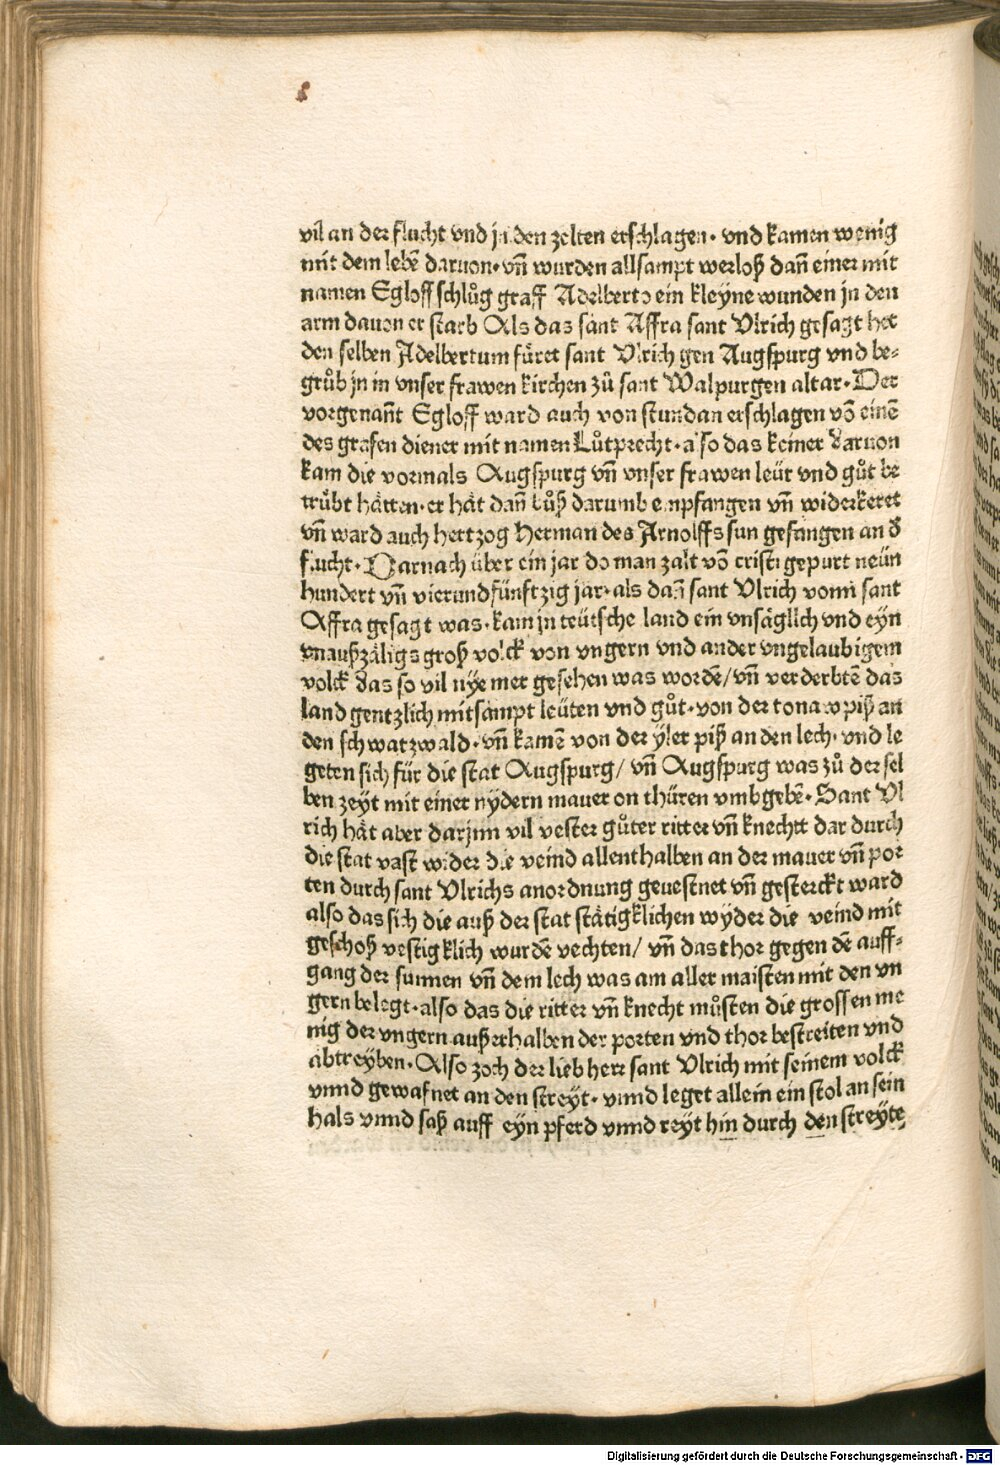 vil an der flucht vnd jn den zelten erschlagen· vnd kamen wenig
mit dem lebẽ daruon· vñ wurden allsampt werloß dañ einer mit
namen Egloff schlůg graff Adelberto ein kleyne wunden jn den
arm dauon er starb Als das sant Affra sant Vlrich gesagt het
den selben Adelbertum fůret sant Vlrich gen Augspurg vnd be⸗
grůb jn in vnser frawen kirchen zů sant Walpurgen altar· Der
vorgenañt Egloff ward auch von stundan erschlagen võ einẽ
des grafen diener mit namen Lůtprecht· also das keiner daruon
kam die vormals Augspurg vñ vnser frawen leüt vnd gůt be
trůbt hätten· er hät dañ bůß darumb enpfangen vñ widerkeret
vñ ward auch hertzog Herman des Arnolffs sun gefangen an d̕
flucht· Darnach über ein jar do man zalt võ cristi gepurt neün
hundert vñ vierundfünftzig jar· als dañ sant Vlrich vonn sant
Affra gesagt was· kam jn teütsche land ein vnsäglich vnd eyn
vnaußzäligs groß volck von vngern vnd ander vngelaubigem
volck das so vil nye mer gesehen was wordẽ/ vñ verderbtẽ das
land gentzlich mitsampt leüten vnd gůt· von der tonaw piß an
den schwatzwald· vñ kamẽ von der yler piß an den lech· vnd le
geten sich für die stat Augspurg/ vñ Augspurg was zů der sel
ben zeyt mit einer nydern mauer on thüren vmbgebẽ· Sant Vl
rich hät aber darjnn vil vester gůter ritter vñ knecht dar durch
die stat vast wider die veind allenthalben an der mauer vñ por
ten durch sant Vlrichs anordnung geuestnet vñ gesterckt ward
also das sich die auß der stat stätigklichen wyder die veind mit
geschoß vestigklich wurdẽ vechten/ vñ das thor gegen dẽ auff⸗
gang der sunnen vñ dem lech was am aller maisten mit den vn
gern belegt· also das die ritter vñ knecht můsten die grossen me
nig der vngern außerhalben der porten vnd thor bestreiten vnd
abtreyben· Also zoch der lieb herr sant Vlrich mit seinem volck
vnnd gewafnet an den streyt· vnnd leget allein ein stol an sein
hals vnnd saß auff eyn pferd vnnd reyt hin durch den streyte
Digitalisierung gefördert durch die Deutsche Forschungsgemeinschaft - DFG